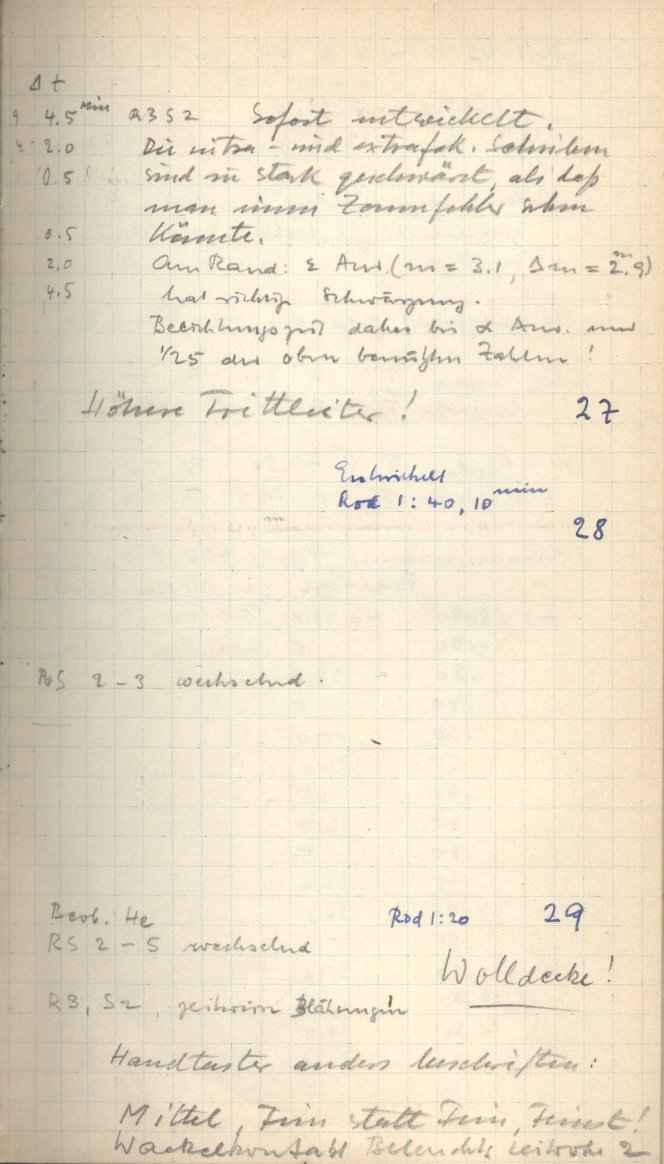 Δt
4.5 min R3 S2 Sofort entwickelt.
2.0 Die intra- und extrafok. Scheiben
0.5 sind zu stark geschwärzt, als daß
man einen Zonenfehler sehen
0.5 könnte.
2.0 Am Rand: ε Aur. (m = 3.1, Δm = 2.9)
4.5 hat richtige Schwärzung.
Belichtungszeit daher bei α Aur. nur
1/25 der oben benützten Zahlen!
Höhere Trittleiter! 27
Entwickelt
Rod 1:40, 10 min
28
RS 2-3 wechselnd.
Beob. He Rod 1:20 29
RS 2-5 wechselnd
Wolldecke!
R3, S2, zeitweise Blähungen
Handtaster anders beschriften:
Mittel, Fein statt Fein, Feinst!
Wackelkontakt Beleuchtg